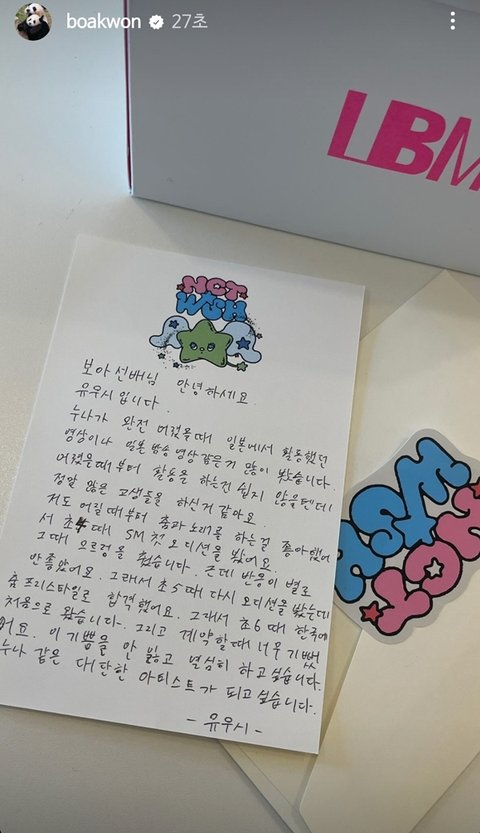 boakwon 27초
LBM
NCT
WISH
보아선배님 안녕하세요
유우시입니다.
누나가 완전 어렸을때 일본에서 활동했던
영상이나 일본 방송 영상 같은거 많이 봤습니다.
어렸을때부터 활동을 하는건 쉽지 않을텐데
정말 많은 고생들을 하신거 같아요.
저도 어릴때부터 춤과 노래를 하는걸 좋아했어
서 초4 때 SM 첫 오디션을 봤어요.
그때 으르렁을 췄습니다. 근데 반응이 별로
안좋았어요. 그래서 초5 때 다시 오디션을 봤는데
춤 프리스타일로 합격했어요. 그래서 초6 때 한국에
처음으로 왔습니다. 그리고 계약할때 너무 기뻤
어요. 이 기쁨을 안 잃고 열심히 하고싶습니다.
누나 같은 대단한 아티스트가 되고싶습니다.
- 유우시 -
NCT
WISH